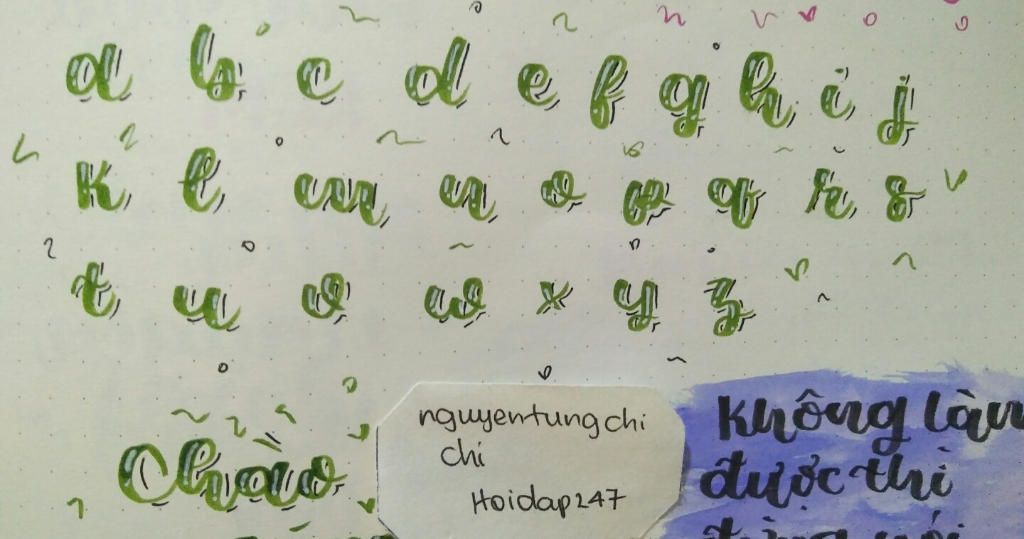 a b c d e f g h i j
k l m n o p q r s
t u v w x y z
Chào
nguyentungchi
chi
Hoidap247
Không làm
được thì
đừng nói